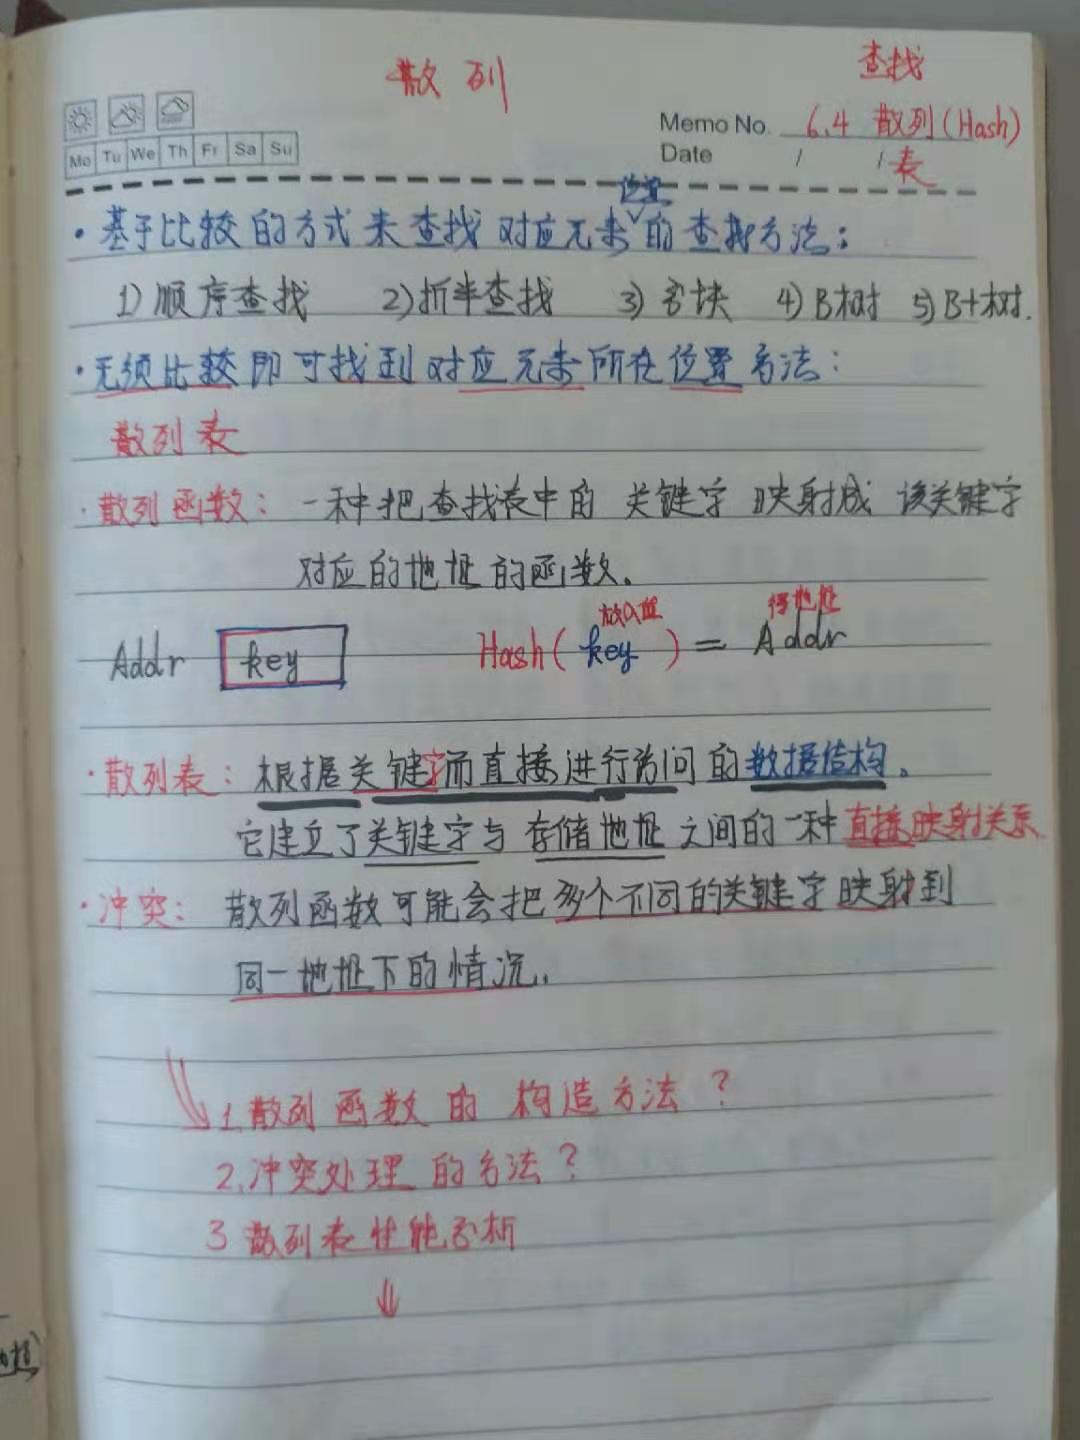 散列
查找
Memo No. 6.4 散列(Hash)
Mo Tu We Th Fr Sa Su
Date / / 表
位置
·基于比较的方式来查找对应元素的查找方法:
1)顺序查找 2)折半查找 3)分块 4)B树 5)B+树.
·无须比较即可找到对应元素所在位置方法:
散列表
·散列函数: 一种把查找表中的关键字映射成该关键字
对应的地址的函数.
放入值 得地址
Addr key Hash(key)=Addr
·散列表: 根据关键字而直接进行访问的数据结构.
它建立了关键字与存储地址之间的一种直接映射关系
·冲突: 散列函数可能会把多个不同的关键字映射到
同一地址下的情况.
1.散列函数的构造方法?
2.冲突处理的方法?
3 散列表性能分析